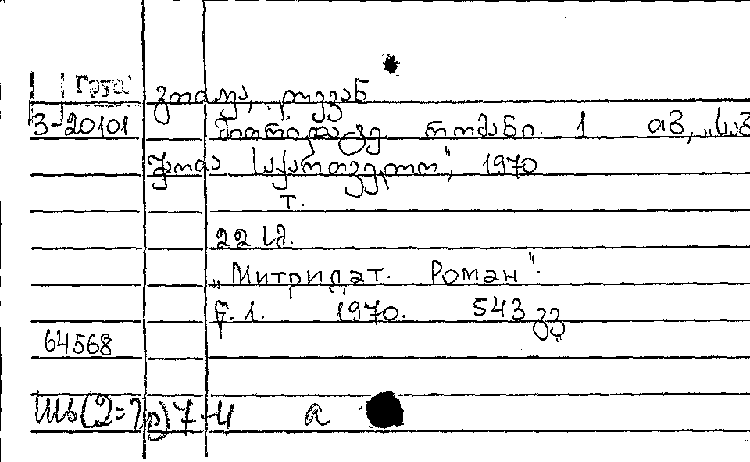 Груз
გოთუა, ლევან
3-20101 მითრიდატე. რომანი. 1 თბ, „საბ
ჭოთა საქართველო“, 1970
т.
22 სმ.
„Митридат. Роман“.
წ. 1. 1970. 543 გვ
64568
7-4 а